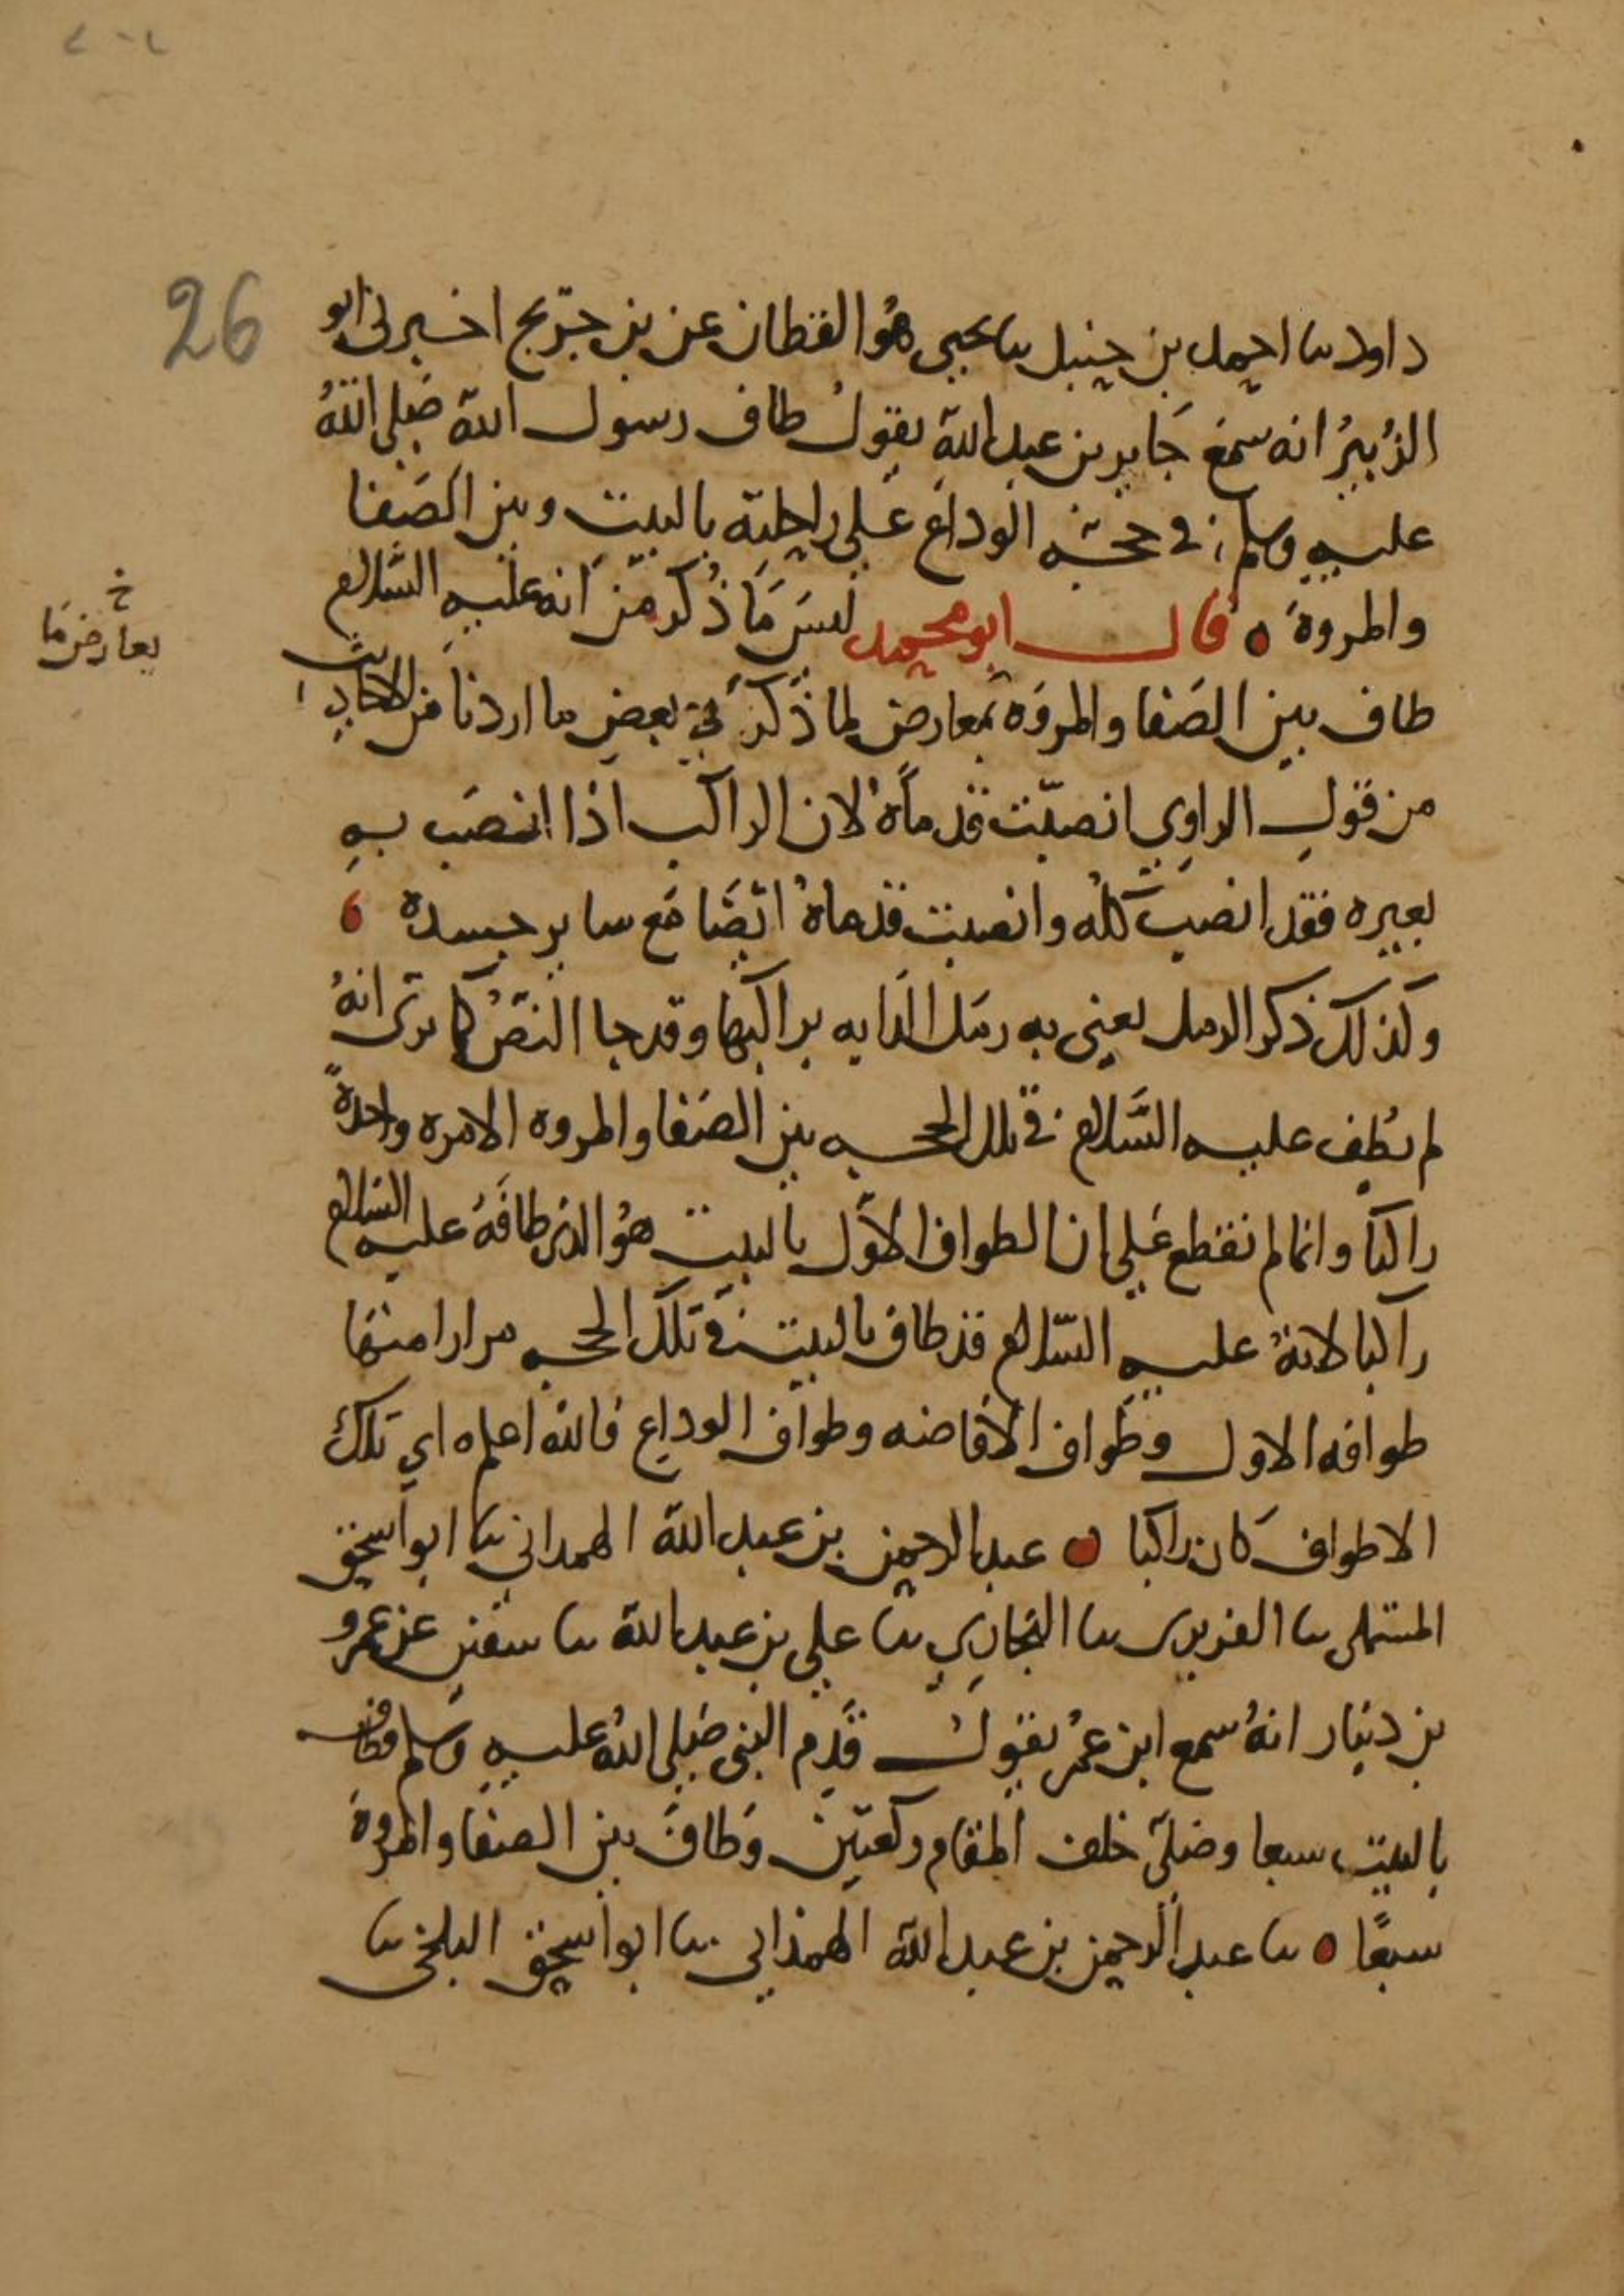 26
داود ثنا احمد بن حنبل ثنا يحيى هو القطان عن بن جريج اخبرنى ابو
الزُبيرُ انه سمع جَابر بن عبد الله يقول طاف رسول الله صَلى اللهُ
عليه وسلم في حجته الوداع عَلى راحلته بالبيت وبين الصَفا
والمروة قال ابو محمد ليسَ مَا ذُكر من انه عليه السَّلام
خ
يعارض مَا
طاف بين الصَفا والمروَة بمعارض لما ذَكر في بعض ما اردنا من الاحاديث
من قولِ الراوي انصبّت قدماهُ لان الراكب اذا انصَب بهِ
بعيره فقد انصبَ كله وانصبت قدماهُ ايضَا مَع ساير جسده
وكذلك ذكر الرمل يعنى به رمَل الدابه براكبها وقد جا النصُ كما ترى انهُ
لم يطف عليه السَّلام في تلك الحجه بين الصَفا والمروه الا مره واحدةً
راكبَا وانما لم نقطع عَلى ان الطواف الاَوّل بالبيت هوُ الذى طافَهُ عليه السَّلام
راكبا لانهُ عليه السَّلام قد طاف بالبيت في تلك الحجه مرارا منها
طوافه الاول وطَواف الاَفاضه وطواف الوداع فالله اعلم اي تلك
الاطواف كان راكبا عبد الرحمن بن عبد الله الهمداني ثنا ابو اسحق
المستملى ثنا الفربرى ثنا البخاري ثنا علي بن عبد الله ثنا سفين عن عمرو
بن دينار انهُ سمع ابن عمُر يقولُ قَدِم النبى صَلى اللهُ عليه وسلم فطاف
بالبيت سبعا وصَلى خلف المقام ركعتين وَطافَ بين الصفا والمروة
سبعًا ثنا عبد الرحمن بن عبد الله الهمذاني ثنا ابو اسحق البلخى ثنا